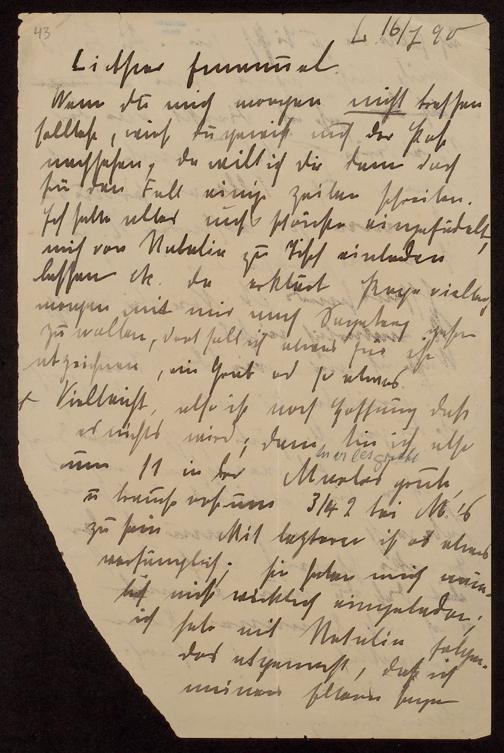 43
L. 16/7 90
Liebster Emanuel.
Wenn du mich morgen nicht treffen
solltest, wirst du gewiß auf der Post
nachsehen, da will ich dir dann doch
für den Fall einige Zeilen schreiben.
Ich hatte alles aufs schönste eingefädelt,
mich von Natalie zu Tisch einladen
lassen etc. da erklärt Papa vielleicht
morgen mit mir nach gehen
zu wollen, dort soll ich etwas für ihn
abzeichnen, ein Grab od so etwas.
Vielleicht, also ist noch Hoffnung daß
es nichts wird; dann bin ich also
um 11 in der
u brauche erst um 3/4 2 bei M's
zu sein Mit letzterem ist es etwas
verfänglich; sie haben mich näm-
lich nicht wirklich eingeladen;
ich habe mit Natalie folgen-
des abgemacht, daß ich
meinen Eltern sage